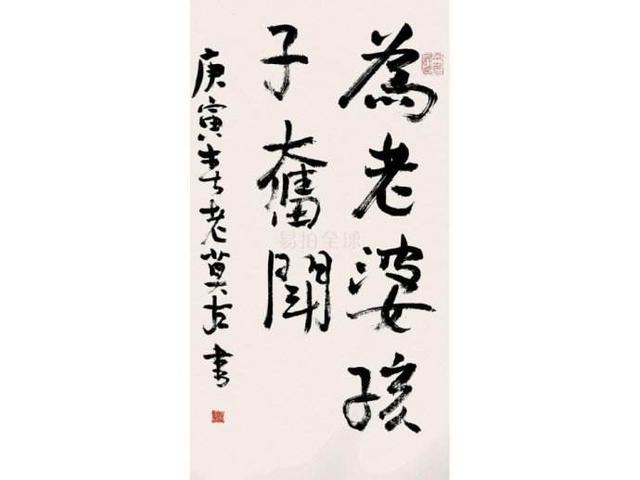 為老婆孩
子奮鬪
庚寅春老莫左書
易拍全球